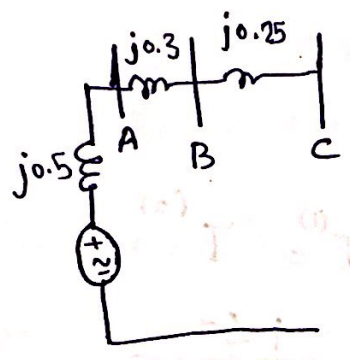 j0.3 j0.25
A B C
j0.5
+